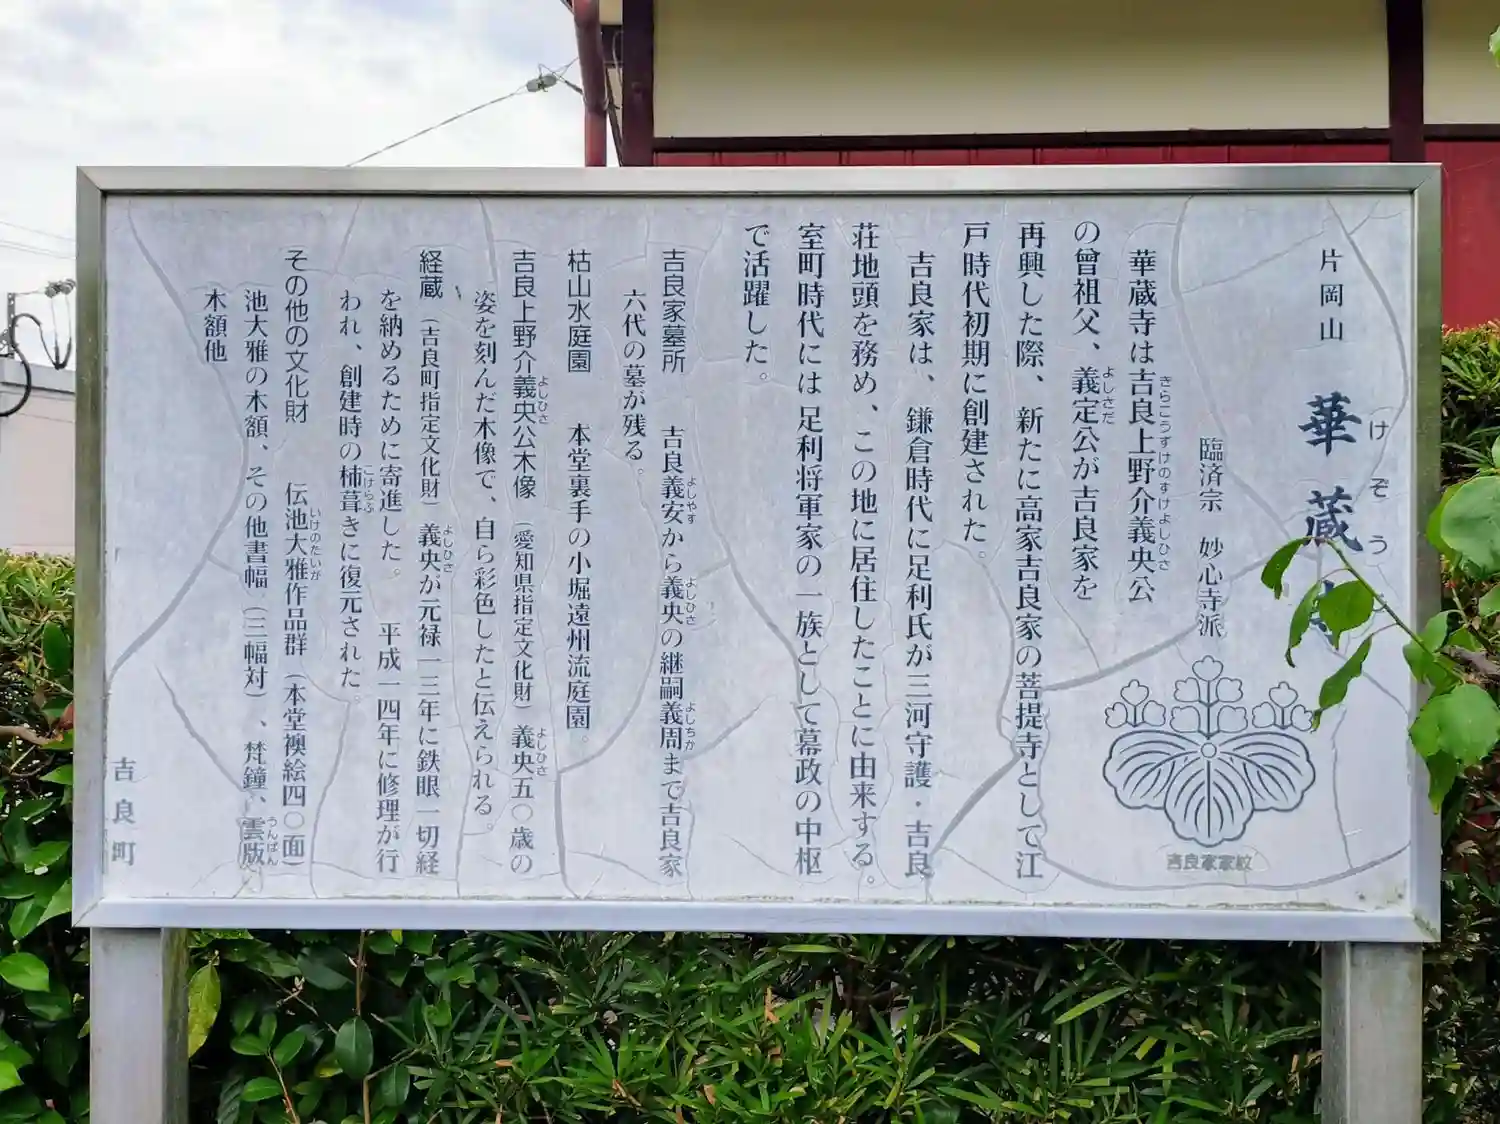 片岡山 華蔵
けぞう
臨済宗 妙心寺派
吉良家家紋
華蔵寺は吉良上野介義央公
きらこうずけのすけよしひさ
の曾祖父、義定公が吉良家を
よしさだ
再興した際、新たに高家吉良家の菩提寺として江
戸時代初期に創建された。
吉良家は、鎌倉時代に足利氏が三河守護・吉良
荘地頭を務め、この地に居住したことに由来する。
室町時代には足利将軍家の一族として幕政の中枢
で活躍した。
吉良家墓所 吉良義安から義央の継嗣義周まで吉良家
よしやす よしひさ よしちか
六代の墓が残る。
枯山水庭園 本堂裏手の小堀遠州流庭園。
吉良上野介義央公木像（愛知県指定文化財）義央五〇歳の
よしひさ よしひさ
姿を刻んだ木像で、自ら彩色したと伝えられる。
経蔵（吉良町指定文化財）義央が元禄一三年に鉄眼一切経
よしひさ
を納めるために寄進した。平成一四年に修理が行
われ、創建時の杮葺きに復元された。
こけらぶ
その他の文化財 伝池大雅作品群（本堂襖絵四〇面）
いけのたいが
池大雅の木額、その他書幅（三幅対）、梵鐘、雲版
うんぱん
木額他
吉良町